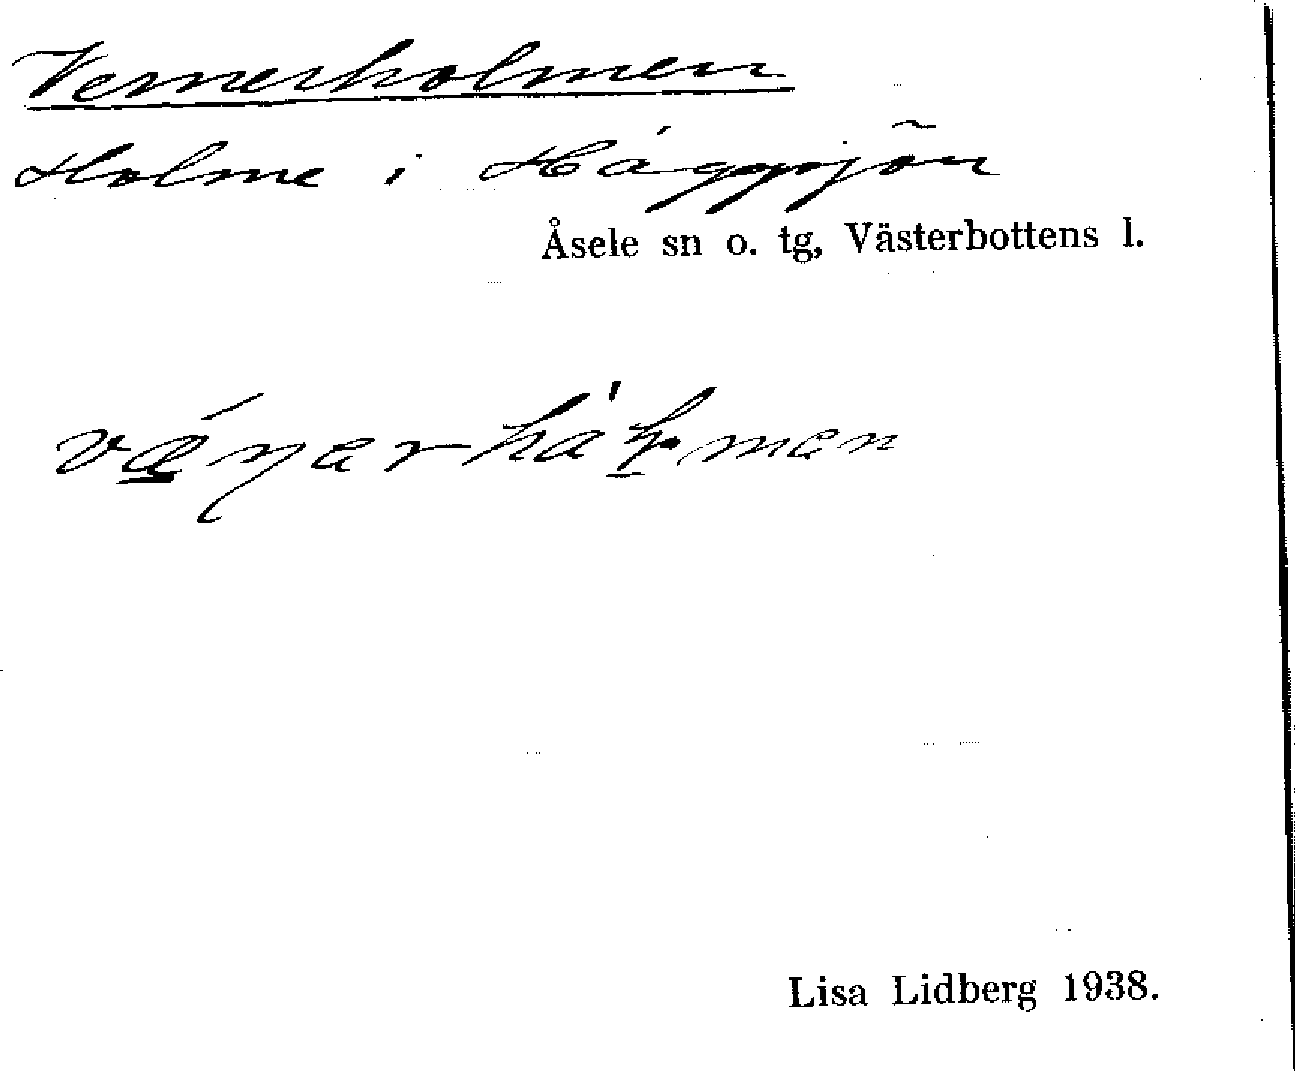 Vernerholmen
Holme i Häggsjön
Åsele sn o. tg, Västerbottens l.
Lisa Lidberg 1938.